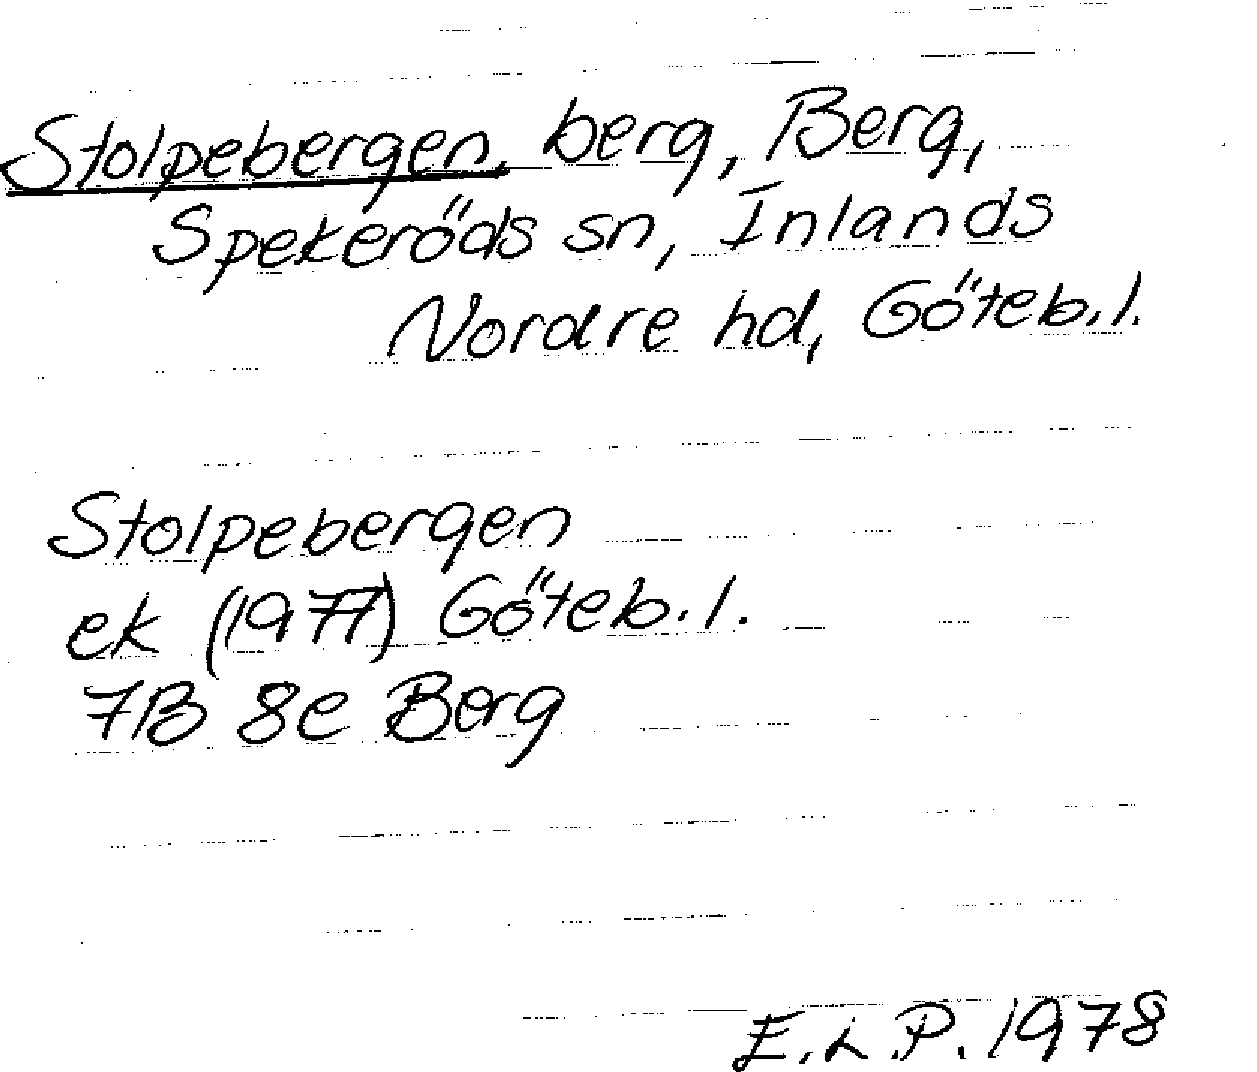 Stolpebergen, berg, Berg,
Spekeröds sn, Inlands
Nordre hd, Göteb.l.
Stolpebergen
ek (1977) Göteb.l.
7B 8e Berg
E.L.P. 1978